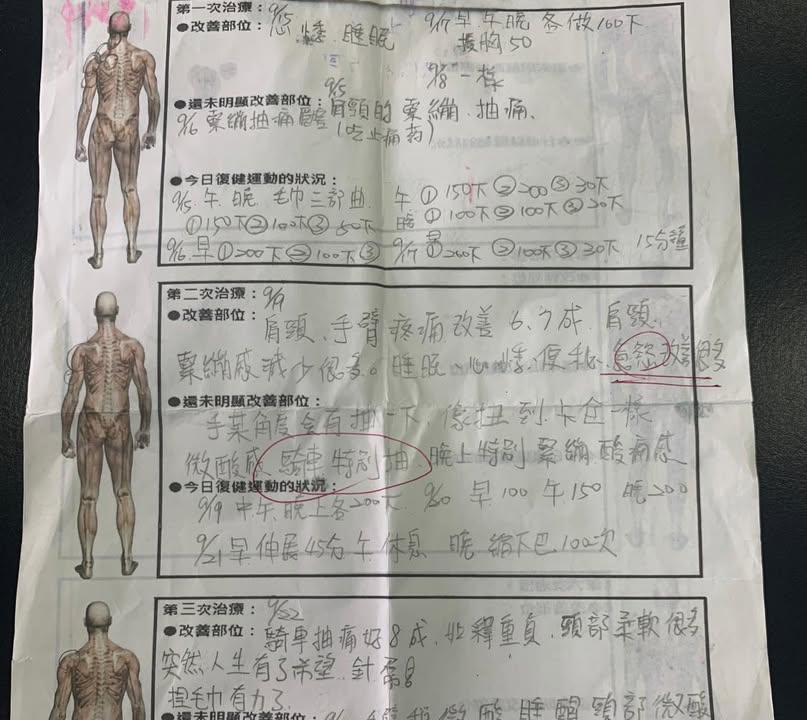 第一次治療：9/15
●改善部位：心悸、睡眠
9/17早午晚各做100下
擴胸50
9/8一樣
9/5
●還未明顯改善部位：肩頸的緊繃、抽痛、
9/6緊繃抽痛 (吃止痛药)
●今日復健運動的狀況：
9/5、午、晚、毛巾三部曲、
①150下②100下③50下
9/6早①200下②100下③
午①150下②200③30下
晚①100下②100下③20下
9/17早①200下②100下③30下 15分鐘
第二次治療：9/19
●改善部位：肩頸、手臂疼痛改善6、7成、肩頸、
緊繃感減少很多。睡眠、心悸、便秘、忘慾改善很多
●還未明顯改善部位：
手某角度會有抽一下 像扭到卡住一樣
微酸感 騎車特別抽、晚上特別緊繃酸痛感
●今日復健運動的狀況：
9/19中午、晚上各200下、9/20 早100午150 晚200
9/21早伸展45分午休息 晚縮下巴100次
第三次治療：9/22
●改善部位：騎車抽痛好8成、如釋重負、頸部柔軟很多
突然人生有了希望、針
扭毛巾有力了
●還未明顯改善部位： 微酸 頸部微酸